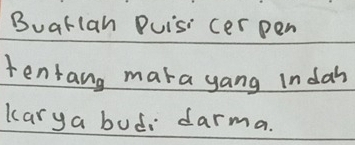 Buatlah Puisi cerpen
tentang mata yang indah
karya budi darma.